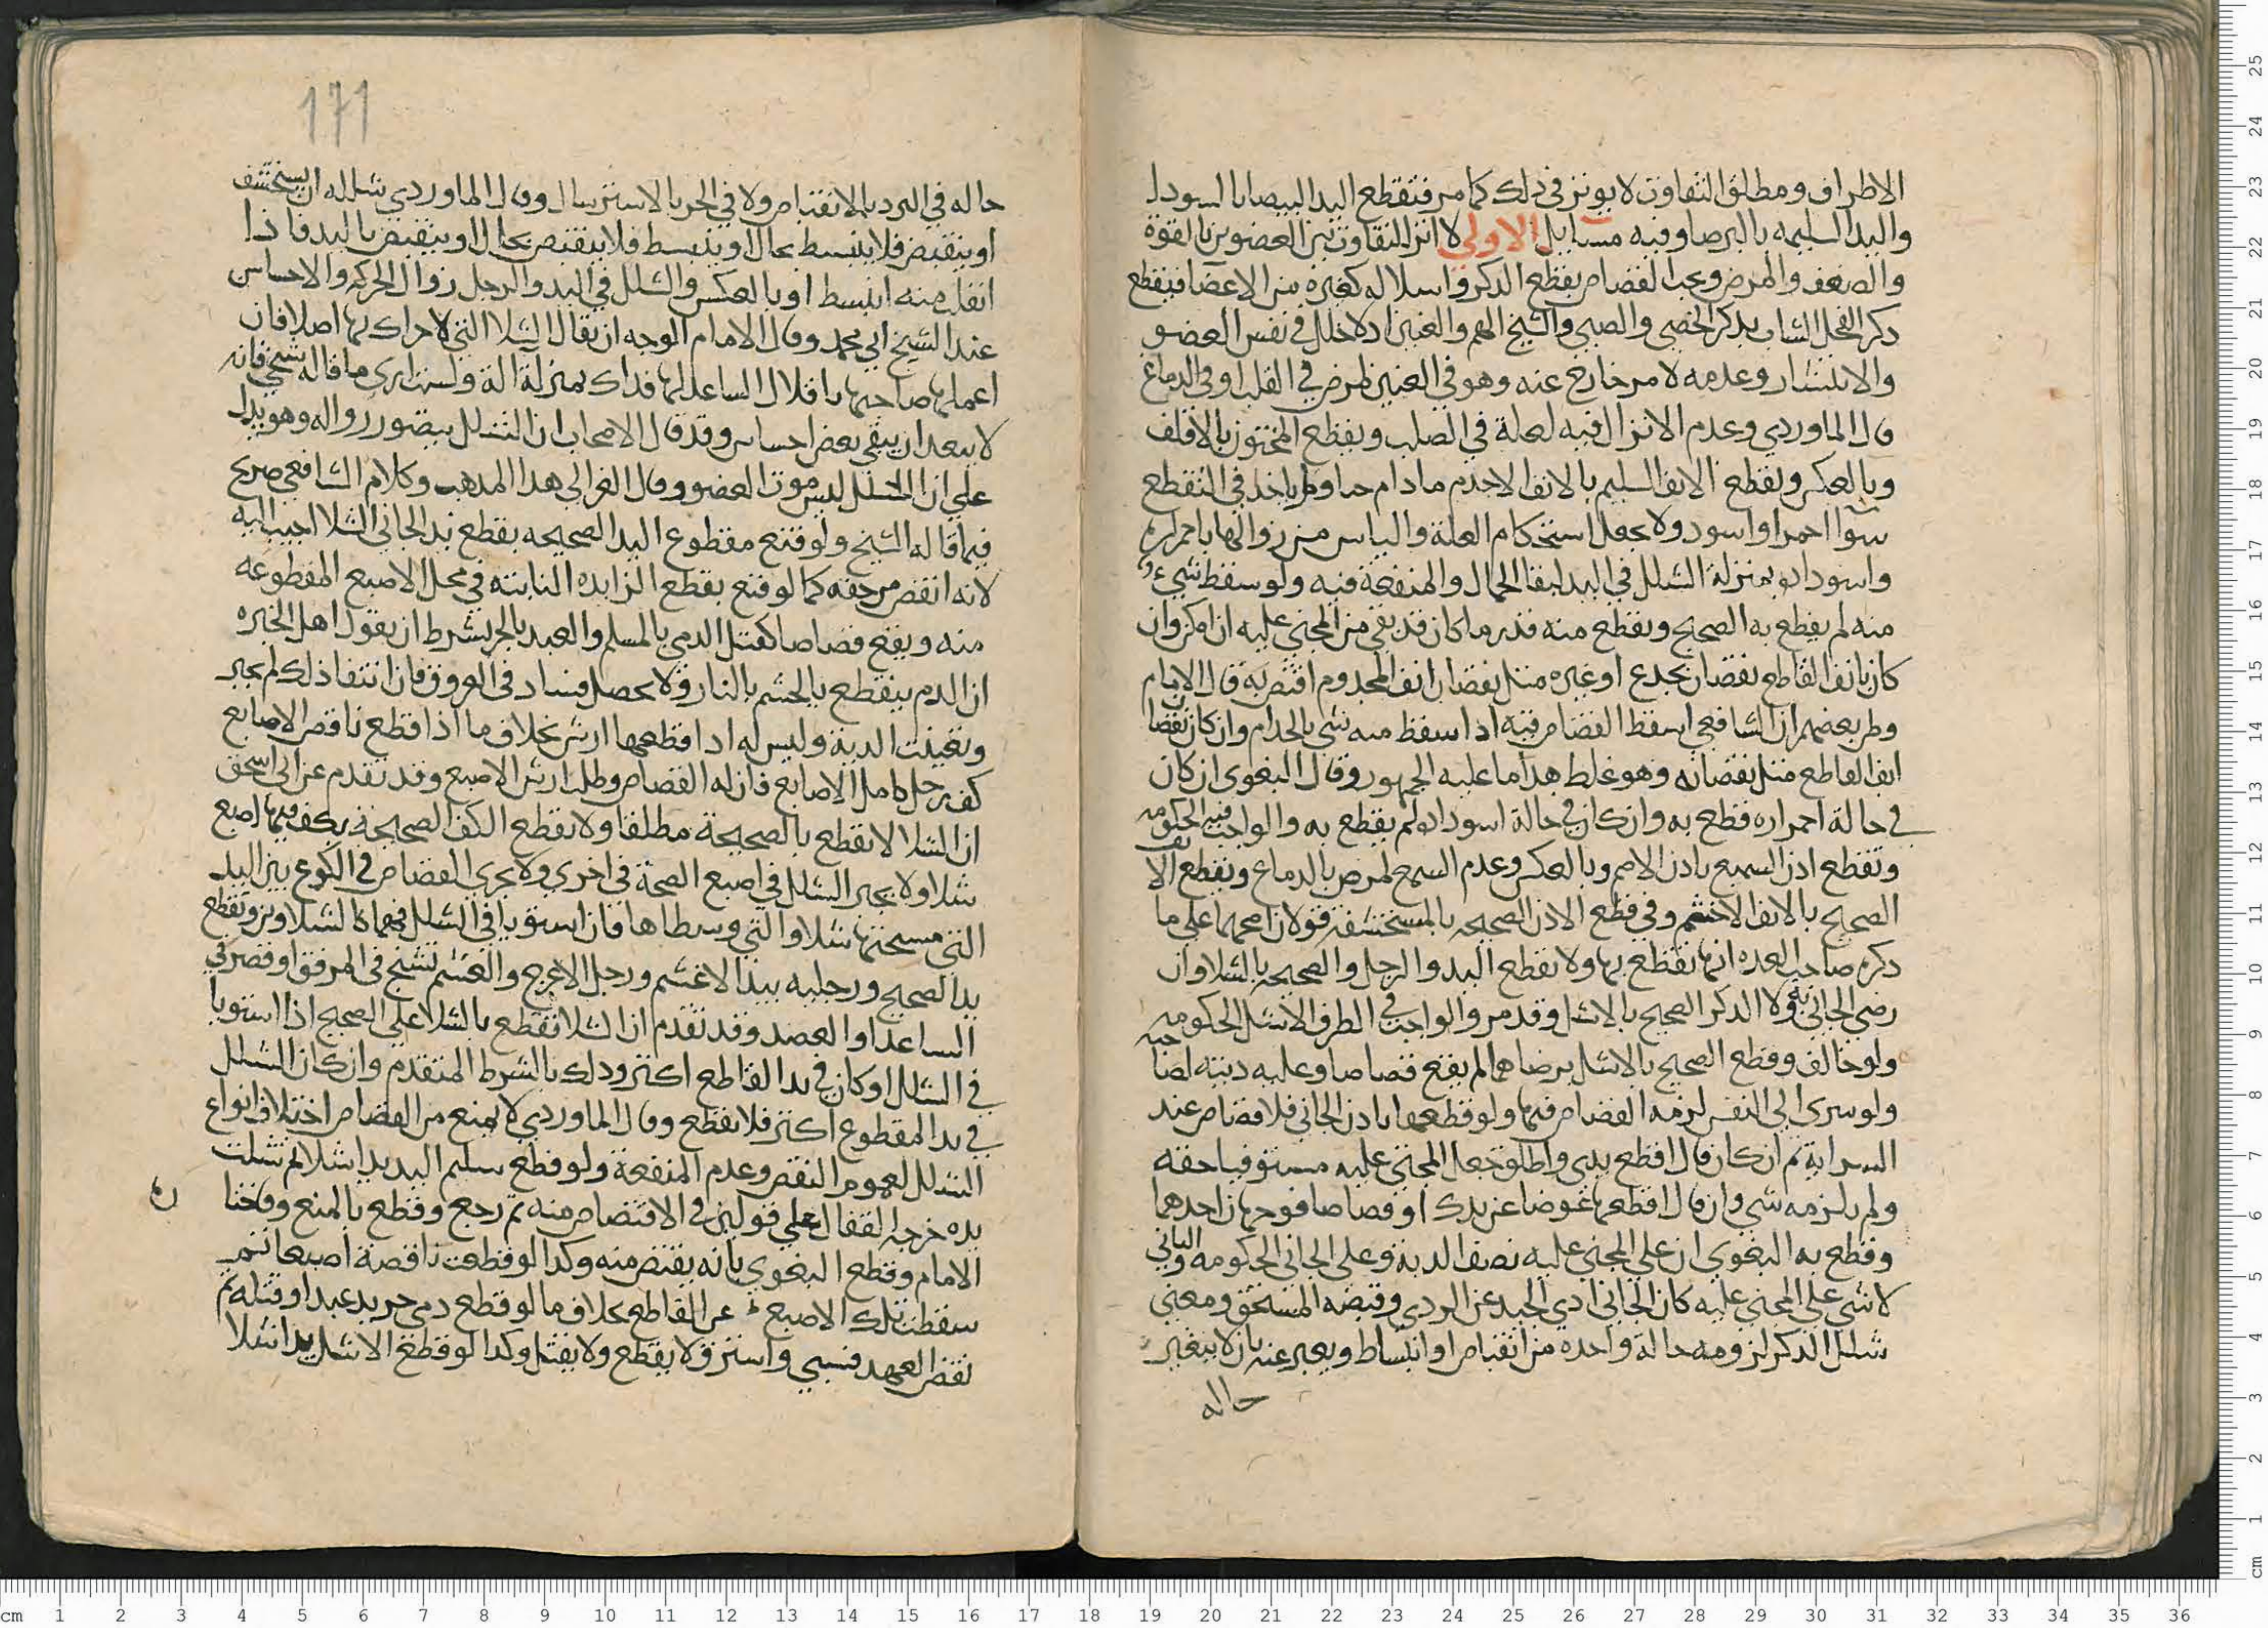 الاطراف ومطلق التفاوت لا يوثر في ذلك كما مر فتقطع اليد البيضا بالسودا
واليد السليمه بالبرصا وفيه مسايل الاولي لا اثر للتفاوت بين العضوين بالقوة
والضعف والمرض ويجب القصاص بقطع الذكر واسلاله كغيره من الاعضا فيقطع
ذكر الفحل الشاب بذكر الخصي والصبي والشيخ الهم والعنين اذ لا خلل في نفس العضو
والانتشار وعدمه لامر خارج عنه وهو في العنين لمرض في القلب او في الدماغ
قال الماوردي وعدم الانزال فيه لعلة في الصلب ويقطع المختون بالاقلف
وبالعكس ويقطع الانف السليم بالانف الاجذم ما دام حيا ولم ياخذ في التقطع
سوا احمر او اسود ولا يجعل استحكام العلة والياس من زوالها باحمراره
واسوداده بمنزلة الشلل في اليد لبقا الجمال والمنفعة فيه ولو سقط شيء
منه لم يقطع به الصحيح ويقطع منه قدر ما كان قد بقي من المجني عليه ان امكن وان
كان بانف القاطع نقصان بجدع او غيره مثل نقصان انف المجذوم اقتص به قال الامام
وظن بعضهم ان الشافعي اسقط القصاص فيه اذا سقط منه شي بالجذام وان كان نقصا
انف القاطع مثل نقصانه وهو غلط هذا ما عليه الجمهور وقال البغوي ان كان
في حالة احمراره قطع به وان كان في حالة اسوداده لم يقطع به والواجب فيه الحكومه
وتقطع اذن السميع باذن الاصم وبالعكس وعدم السمع لمرض بالدماغ ويقطع الانف
الصحيح بالانف الاخشم وفي قطع الاذن الصحيحه بالمستحشفة قولان اصحهما علي ما
ذكره صاحب العده انها تقطع بها ولا تقطع اليد والرجل والصحيحه بالشلا وان
رضي الجاني به ولا الذكر الصحيح بالاشل وقد مر والواجب في الطرف الاشل الحكومه
ولو خالف وقطع الصحيح بالاشل برضاهما لم يقع قصاصا وعليه ديته لصاحبه
ولو سري الي النفس لزمه القصاص فيها ولو قطعها باذن الجاني فلا قصاص عند
السراية ثم ان كان قال اقطع يدي واطلق جعل المجني عليه مستوفيا حقه
ولم يلزمه شي وان قال اقطعها عوضا عن يدك او قصاصا فوجهان احدهما
وقطع به البغوي ان علي المجني عليه نصف الدية وعلي الجاني الحكومه والثاني
لا شي علي المجني عليه كان الجاني ادي الجيد عن الردي وقبضه المستحق ومعني
شلل الذكر لزومه حالة واحده من انقباض او انبساط ويعبر عنه بان لا يتغير
حاله
171
حاله في البرد بالانقباض ولا في الحر بالاسترسال وقال الماوردي شلله ان يستحشف
او ينقبض فلا ينبسط بحال او ينبسط فلا ينقبض بحال او ينقبض باليد فاذا
انفلت منه انبسط او بالعكس والشلل في اليد والرجل زوال الحركه والاحساس
عند الشيخ ابي محمد وقال الامام الوجه ان يقال الشلا التي لا حراك بها اصلا فان
اعملها صاحبها باقلال الساعد لها فذاك بمنزلة الة ولست اري ما قاله شيخي فانه
لا يبعد ان يبقي بعض احساس وقد قال الاصحاب ان الشلل يتصور زواله وهو يدل
علي ان الشلل ليس موت العضو وقال الغزالي هذا المذهب وكلام الشافعي صريح
فيما قاله الشيخ ولو قنع مقطوع اليد الصحيحه بقطع يد الجاني الشلا اجيب اليه
لانه انقص من حقه كما لو قنع بقطع الزايده النابته في محل الاصبع المقطوعه
منه ويقع قصاصا كقتل الذمي بالمسلم والعبد بالحر بشرط ان يقول اهل الخبره
ان الدم ينقطع بالحسم بالنار ولا يحصل فساد في العروق فان انتفا ذلك لم يجبر
وتعينت الدية وليس له اذا قطعها ارش بخلاف ما اذا قطع ناقص الاصابع
كف رجل كامل الاصابع فان له القصاص وطلب ارش الاصبع وقد تقدم عن ابي اسحق
ان الشلا لا تقطع بالصحيحة مطلقا ولا تقطع الكف الصحيحة بكف فيها اصبع
شلا ولا يجبر الشلل في اصبع الصحة في اخري ولا يجري القصاص في الكوع بين اليد
التي مسبحتها شلا والتي وسطاها فان استويا في الشلل فهما كالشلاوين وتقطع
يد الصحيح ورجليه بيد الاعسم ورجل الاعرج والعسم تشنج في المرفق او قصر في
الساعد او العضد وقد تقدم ان الشلا تقطع بالشلا علي الصحيح اذا استويا
في الشلل او كان في يد القاطع اكثر وذلك بالشرط المتقدم وان كان الشلل
في يد المقطوع اكثر فلا تقطع وقال الماوردي لا يمنع من القصاص اختلاف انواع
الشلل لعموم النقص وعدم المنفعة ولو قطع سليم اليد يدا شلا ثم شلت
يده خرجه القفال علي قولين في الاقتصاص منه ثم رجع وقطع بالمنع وقختا
الامام وقطع البغوي بانه يقتص منه وكذا لو قطعت ناقصة اصبعا ثم
سقطت تلك الاصبع عن القاطع بخلاف ما لو قطع ذمي حر يد عبد او قتله ثم
نقض العهد فسبي واسترق لا يقطع ولا يقتل وكذا لو قطع الاشل يدا شلا